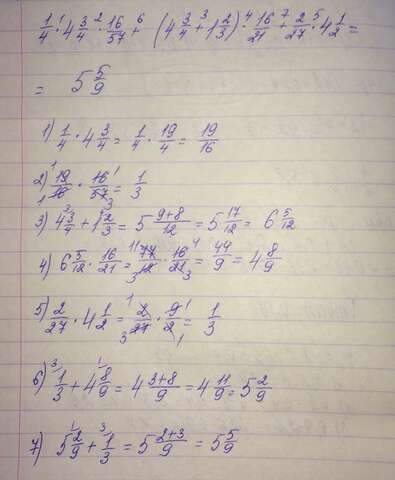 1/4 ·¹ 4 3/4 ·² 16/57 +⁶ (4 3/4 +³ 1 2/3) ·⁴ 16/21 +⁷ 2/27 ·⁵ 4 1/2 =
= 5 5/9
1) 1/4 · 4 3/4 = 1/4 · 19/4 = 19/16
2) 19/16 · 16/57 = 1/3
3) 4 3/4 + 1 2/3 = 5 (9+8)/12 = 5 17/12 = 6 5/12
4) 6 5/12 · 16/21 = 77/12 · 16/21 = 44/9 = 4 8/9
5) 2/27 · 4 1/2 = 2/27 · 9/2 = 1/3
6) 1/3 + 4 8/9 = 4 (3+8)/9 = 4 11/9 = 5 2/9
7) 5 2/9 + 1/3 = 5 (2+3)/9 = 5 5/9